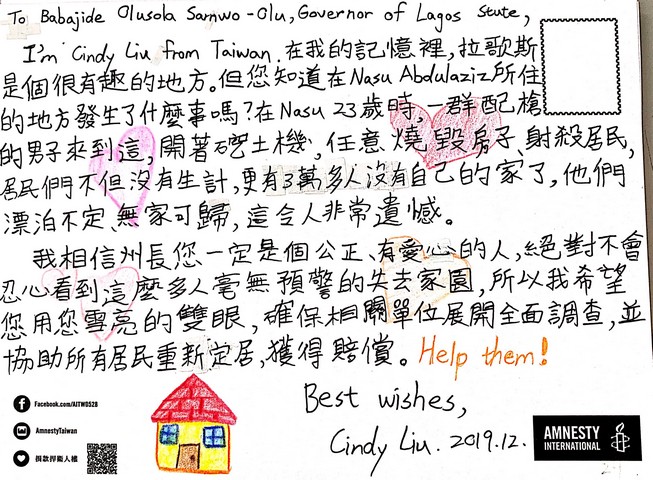 To Babajide Olusola Sanwo-Olu, Governor of Lagos State,
I'm Cindy Liu from Taiwan. 在我的記憶裡, 拉歌斯
是個很有趣的地方。但您知道在Nasu Abdulaziz所住
的地方發生了什麼事嗎? 在Nasu 23歲時, 一群配槍
的男子來到這, 開著挖土機, 任意燒毀房子、射殺居民,
居民們不但沒有生計, 更有3萬多人沒有自己的家了, 他們
漂泊不定、無家可歸, 這令人非常遺憾。
我相信州長您一定是個公正、有愛心的人, 絕對不會
忍心看到這麼多人毫無預警的失去家園, 所以我希望
您用您雪亮的雙眼, 確保相關單位展開全面調查, 並
協助所有居民重新定居, 獲得賠償。Help them!
Best wishes,
Cindy Liu. 2019.12.
Facebook.com/AITW0528
AmnestyTaiwan
捐款捍衛人權
AMNESTY
INTERNATIONAL